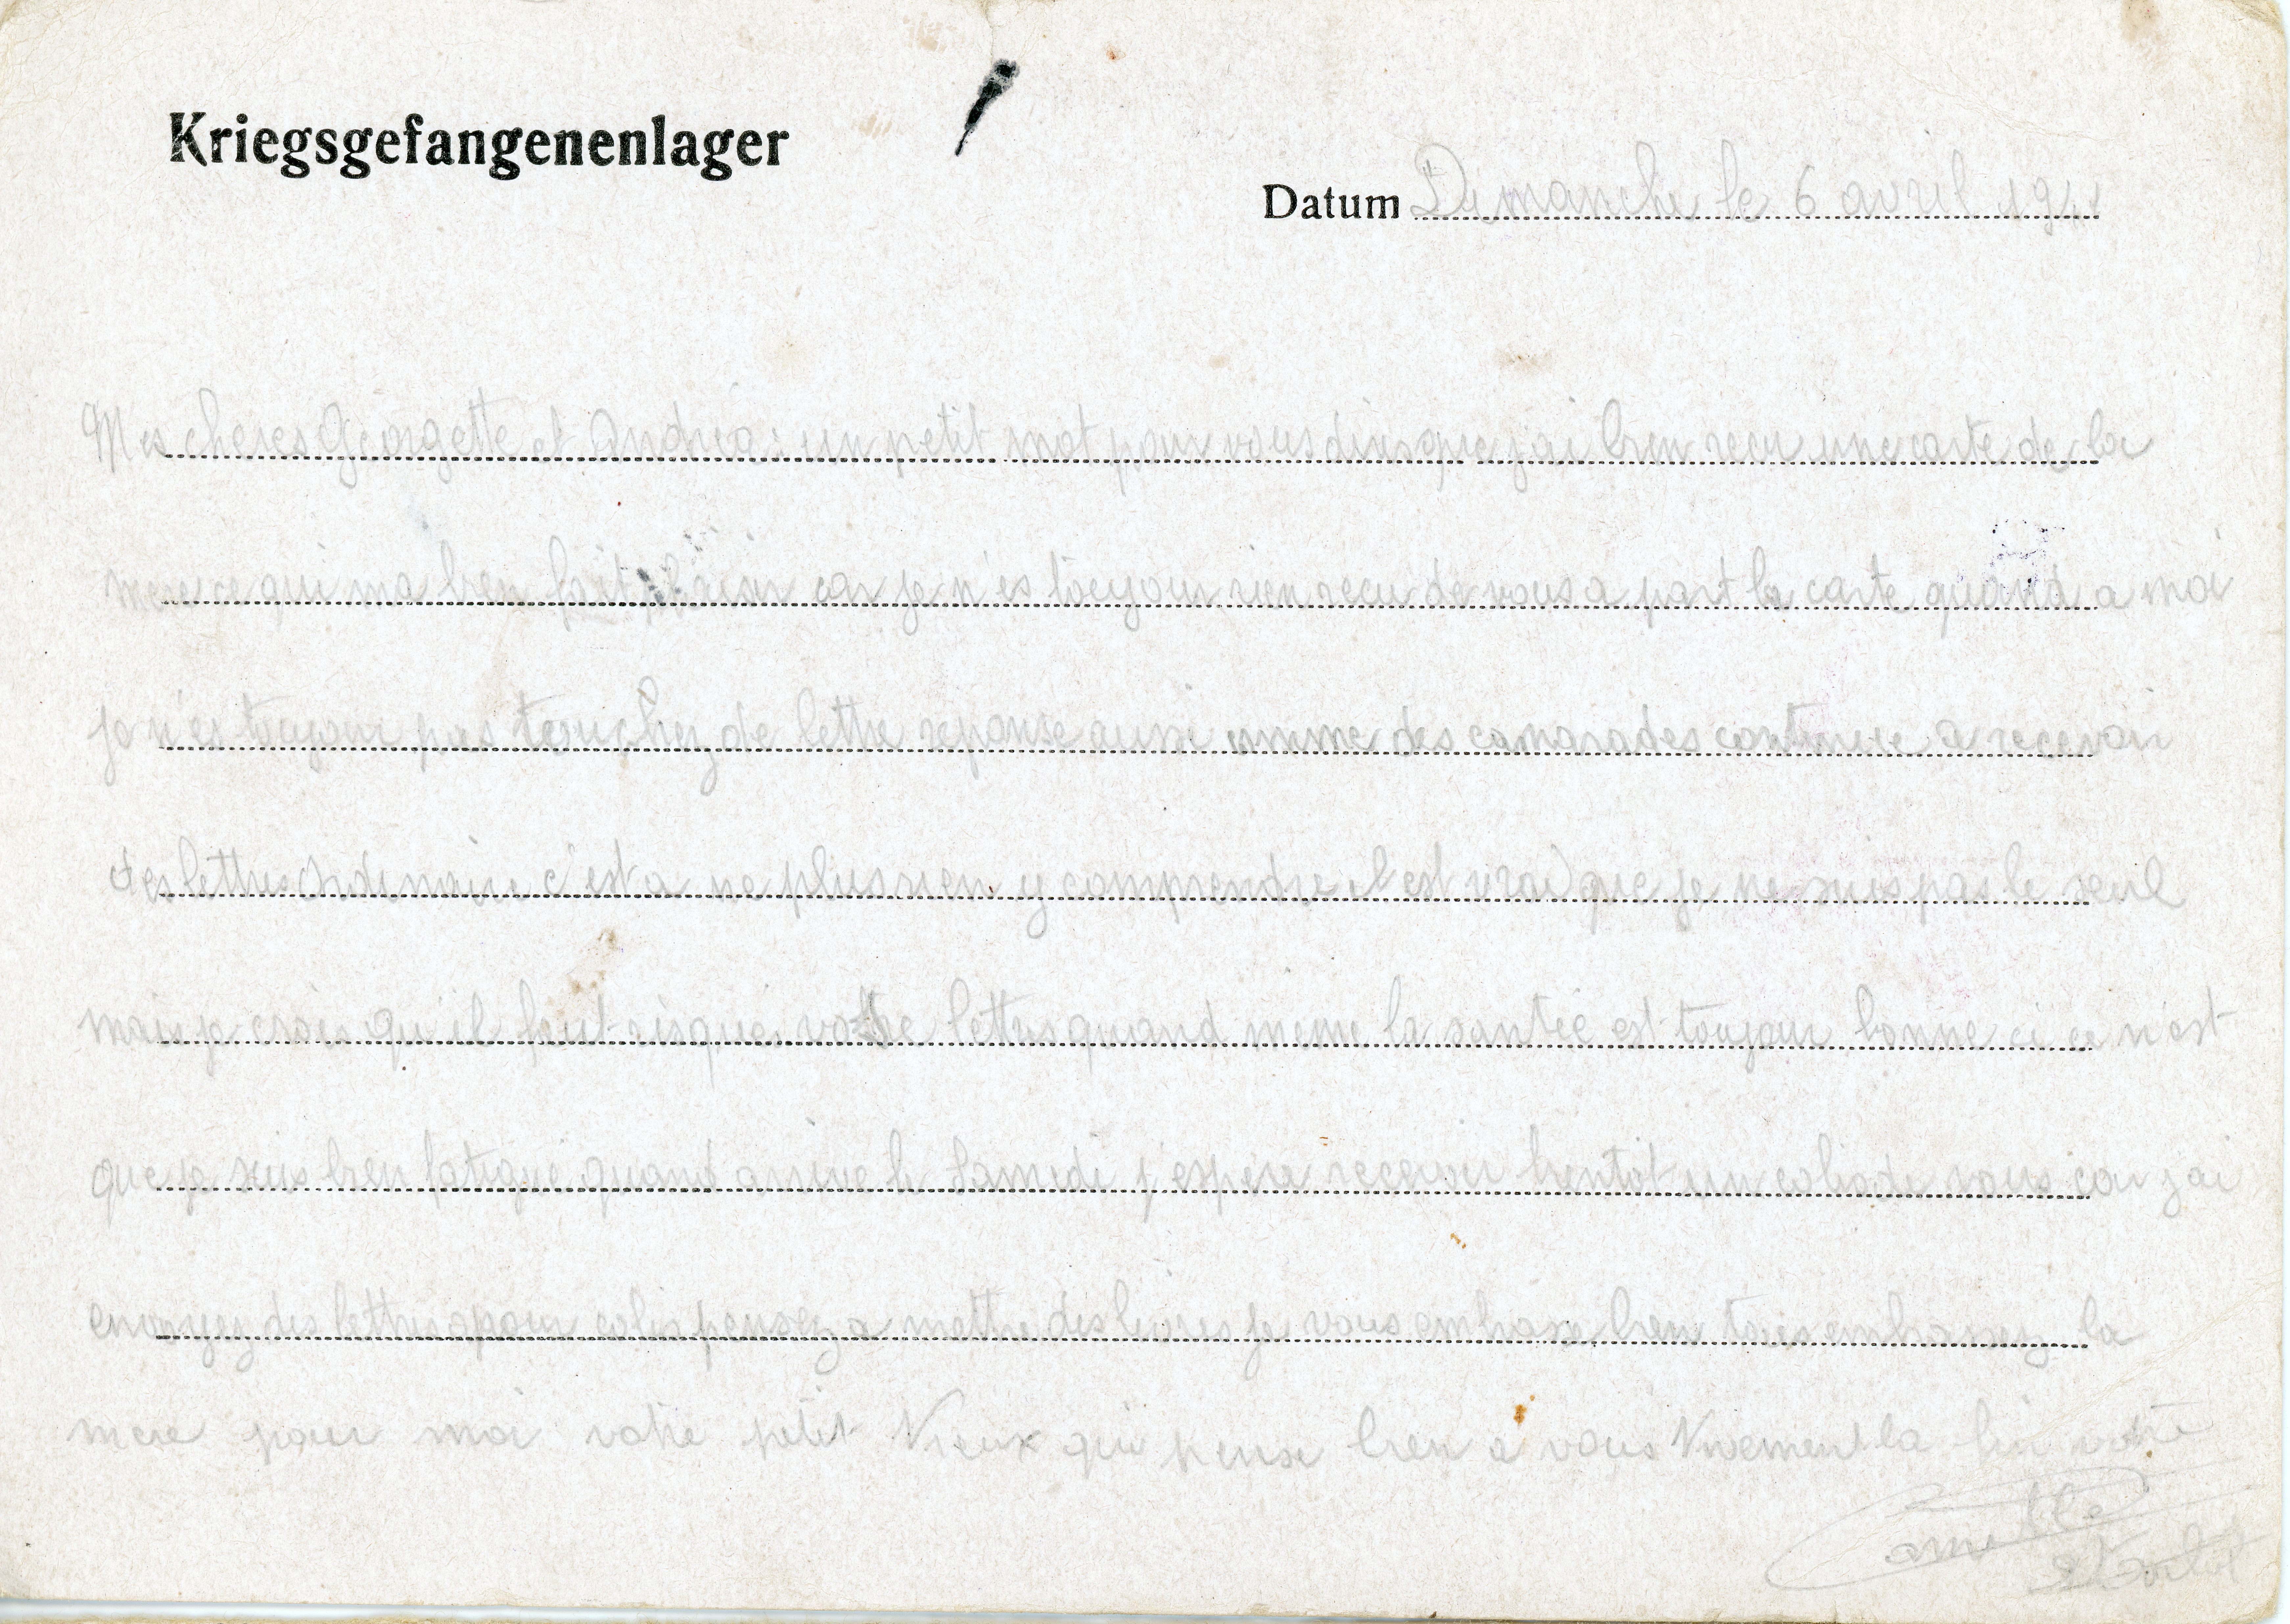 Kriegsgefangenenlager
Datum Dimanche le 6 avril 1941
Mes cheres Georgette et Andrea : un petit mot pour vous dire que j'ai bien recu une carte de la
qui ma bien fait plaisir car je n'es toujour rien recu de vous a part la carte quand a moi
je n'es toujour pas touchez de lettre reponse aussi des camarades continue a recevoir
des lettres Ordinaire c'est a ne plus rien y comprendre il est vrai que je ne suis pas le seul
mais je crois qu'il faut risquer votre lettre quand meme la santée est toujour bonne ci ce n'est
que je suis bien fatigué quand arrive le Samedi j'espere recevoir bientot un colis de vous car j'ai
envoyez des lettres pour colis pensez a mettre des je vous embrasse bien tous embrassez la
mere pour moi votre petit Vieux qui pense bien a vous Vivement la fin votre
Camille